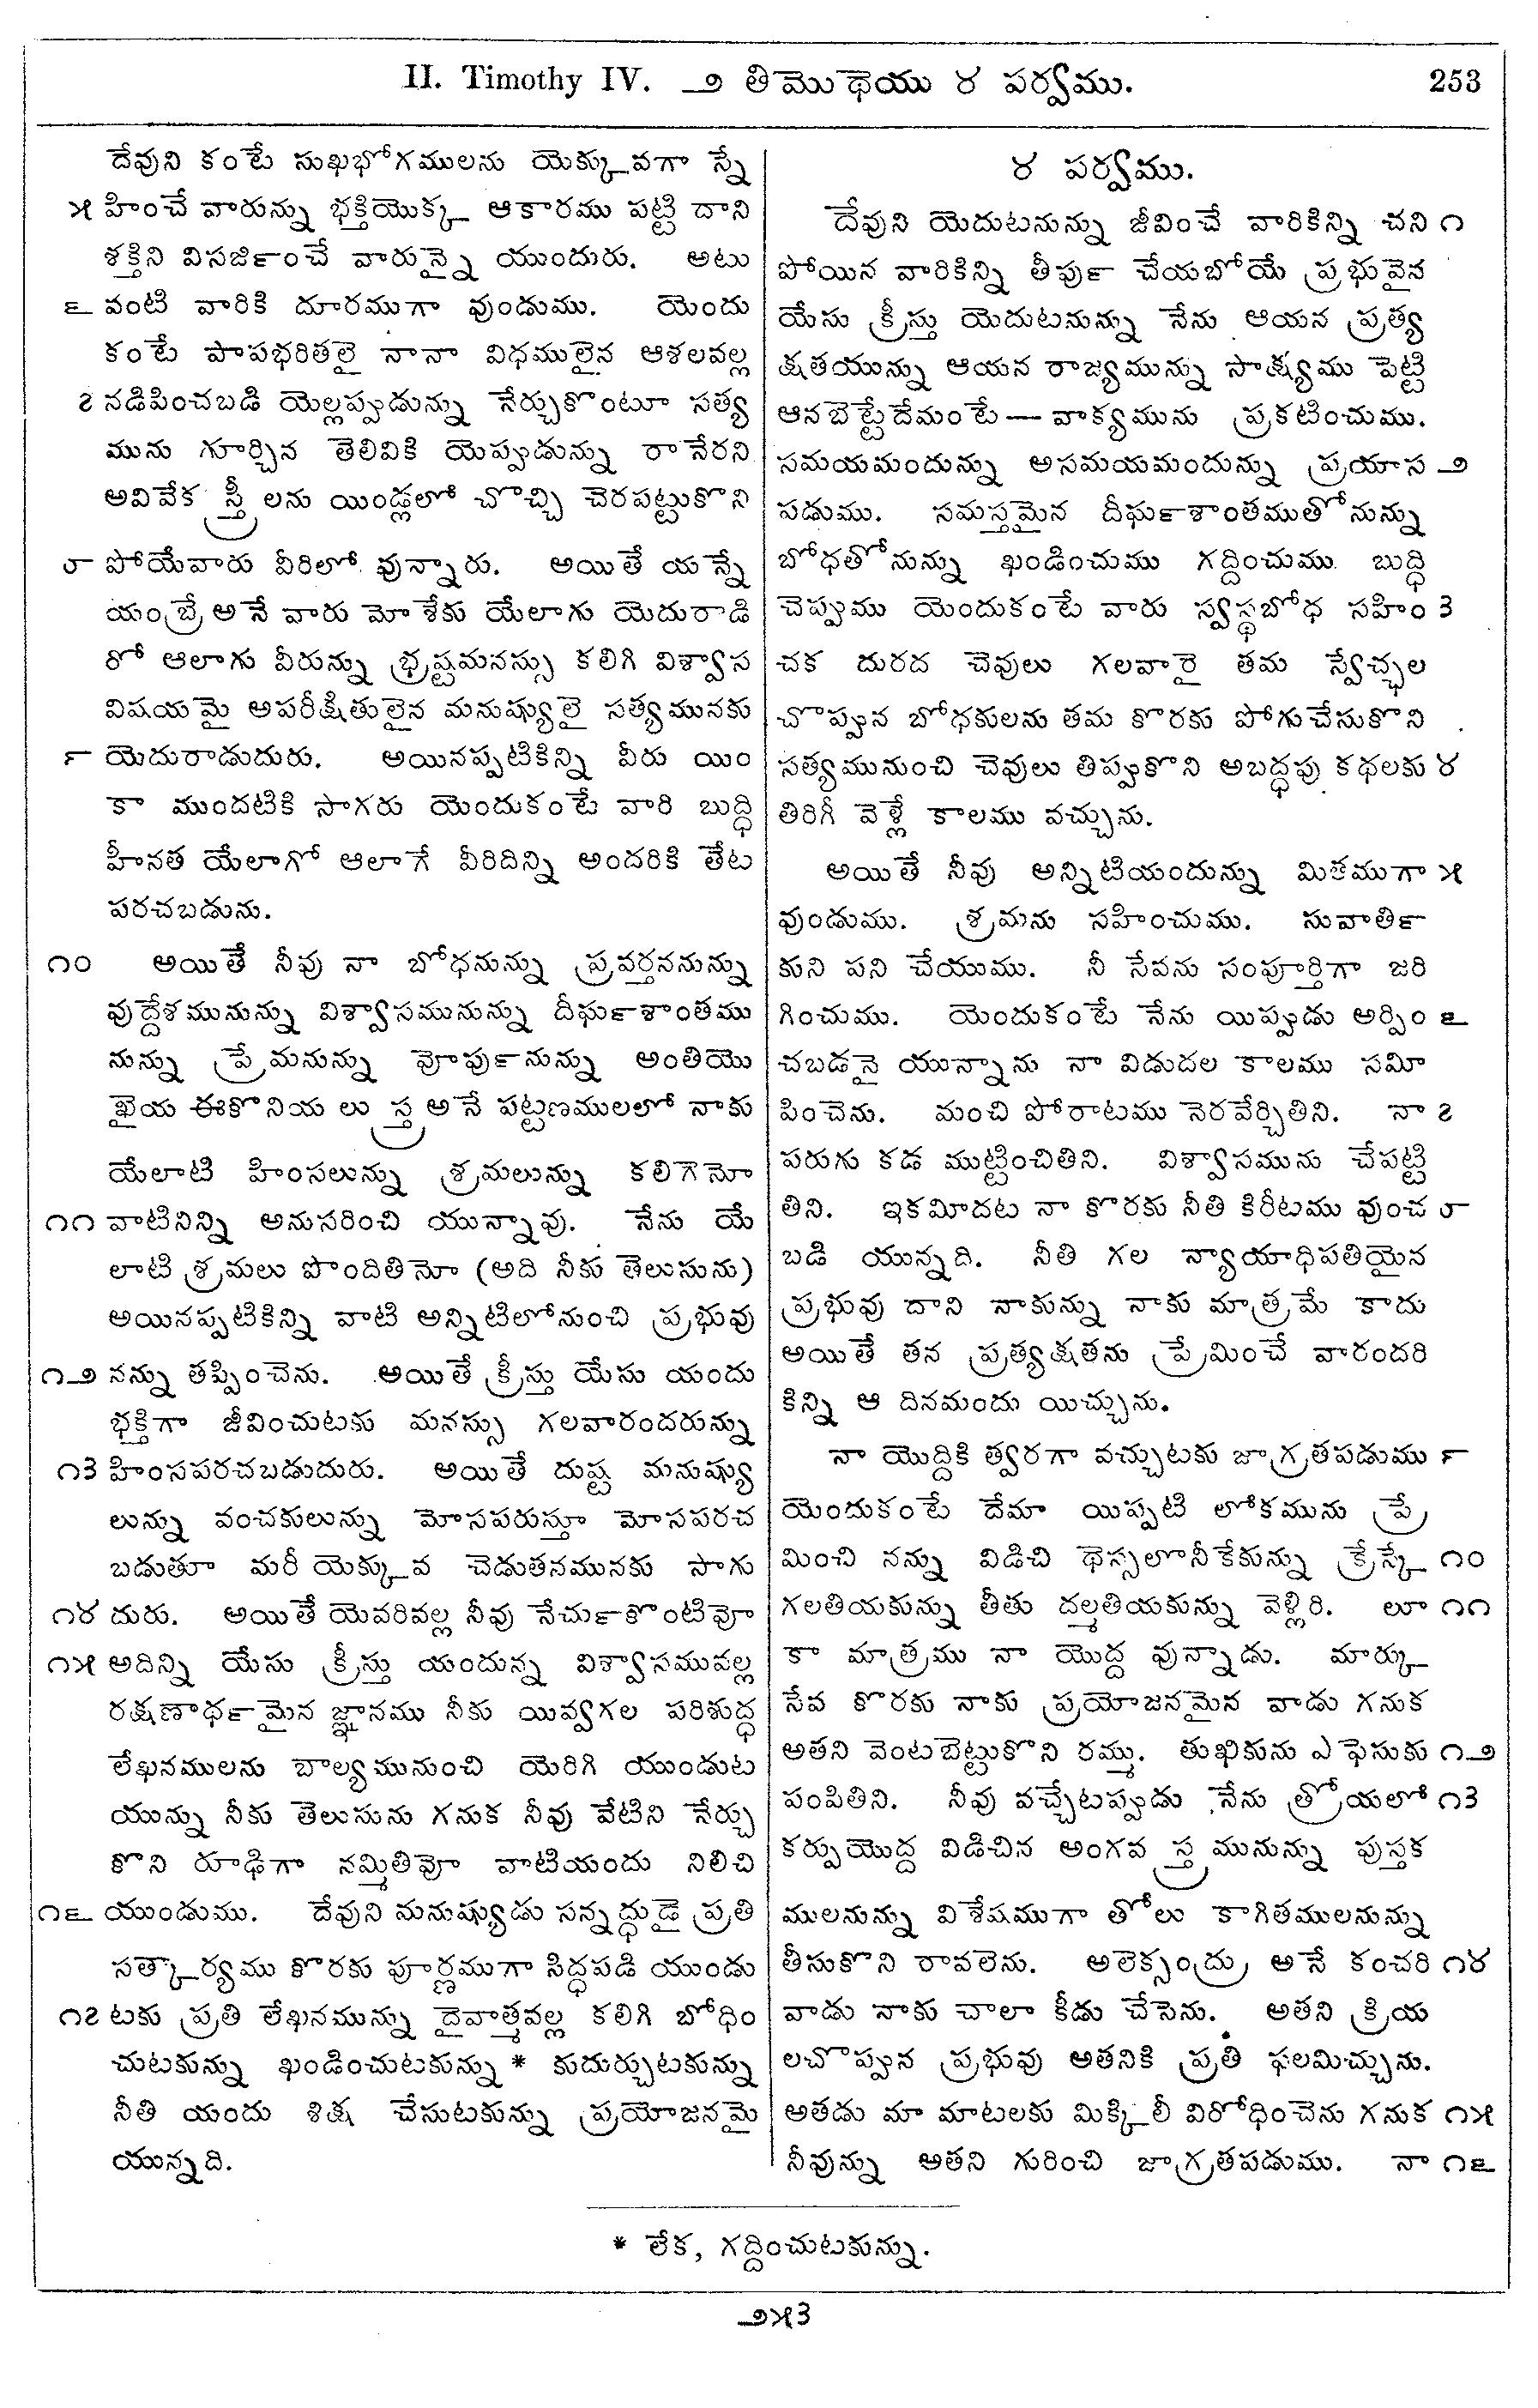 II. Timothy IV. ౨ తిమొథెయు ౪ పర్వము. 253
దేవుని కంటే సుఖభోగములను యెక్కువగా స్నే
౫ హించే వారున్ను భక్తియొక్క ఆకారము పట్టి దాని
శక్తిని విసర్జించే వారున్నై యుందురు. అటు
౬ వంటి వారికి దూరముగా వుండుము. యెందు
కంటే పాపభరితలై నానా విధములైన ఆశలవల్ల
౭ నడిపించబడి యెల్లప్పుడున్ను నేర్చుకొంటూ సత్య
మును గూర్చిన తెలివికి యెప్పుడున్ను రానేరని
అవివేక స్త్రీలను యిండ్లలో చొచ్చి చెరపట్టుకొని
౮ పోయేవారు వీరిలో వున్నారు. అయితే యన్నే
యంబ్రే అనే వారు మోశేకు యేలాగు యెదురాడి
రో ఆలాగు వీరున్ను భ్రష్టమనస్సు కలిగి విశ్వాస
విషయమై అపరీక్షితులైన మనుష్యులై సత్యమునకు
౯ యెదురాడుదురు. అయినప్పటికిన్ని వీరు యిం
కా ముందటికి సాగరు యెందుకంటే వారి బుద్ధి
హీనత యేలాగో ఆలాగే వీరిదిన్ని అందరికి తేట
పరచబడును.
౧౦ అయితే నీవు నా బోధనున్ను ప్రవర్తననున్ను
వుద్దేశమునున్ను విశ్వాసమునున్ను దీర్ఘశాంతము
నున్ను ప్రేమనున్ను వోర్పునున్ను అంతియొ
ఖైయ ఈకొనియ లుస్త్ర అనే పట్టణములలో నాకు
యేలాటి హింసలున్ను శ్రమలున్ను కలిగెనో
౧౧ వాటినిన్ని అనుసరించి యున్నావు. నేను యే
లాటి శ్రమలు పొందితినో (అది నీకు తెలుసును)
అయినప్పటికిన్ని వాటి అన్నిటిలోనుంచి ప్రభువు
౧౨ నన్ను తప్పించెను. అయితే క్రీస్తు యేసు యందు
భక్తిగా జీవించుటకు మనస్సు గలవారందరున్ను
౧౩ హింసపరచబడుదురు. అయితే దుష్ట మనుష్యు
లున్ను వంచకులున్ను మోసపరుస్తూ మోసపరచ
బడుతూ మరీ యెక్కువ చెడుతనమునకు సాగు
౧౪ దురు. అయితే యెవరివల్ల నీవు నేర్చుకొంటివో
౧౫ అదిన్ని యేసు క్రీస్తు యందున్న విశ్వాసమువల్ల
రక్షణార్థమైన జ్ఞానము నీకు యివ్వగల పరిశుద్ధ
లేఖనములను బాల్యమునుంచి యెరిగి యుండుట
యున్ను నీకు తెలుసును గనుక నీవు వేటిని నేర్చు
కొని రూఢిగా నమ్మితివో వాటియందు నిలిచి
౧౬ యుండుము. దేవుని మనుష్యుడు సన్నద్ధుడై ప్రతి
సత్కార్యము కొరకు పూర్ణముగా సిద్ధపడి యుండు
౧౭ టకు ప్రతి లేఖనమున్ను దైవాత్మవల్ల కలిగి బోధిం
చుటకున్ను ఖండించుటకున్ను * కుదుర్చుటకున్ను
నీతి యందు శిక్ష చేసుటకున్ను ప్రయోజనమై
యున్నది.
౪ పర్వము.
దేవుని యెదుటనున్ను జీవించే వారికిన్ని చని ౧
పోయిన వారికిన్ని తీర్పు చేయబోయే ప్రభువైన
యేసు క్రీస్తు యెదుటనున్ను నేను ఆయన ప్రత్య
క్షతయున్ను ఆయన రాజ్యమున్ను సాక్ష్యము పెట్టి
ఆనబెట్టేదేమంటే — వాక్యమును ప్రకటించుము.
సమయమందున్ను అసమయమందున్ను ప్రయాస ౨
పడుము. సమస్తమైన దీర్ఘశాంతముతోనున్ను
బోధతోనున్ను ఖండించుము గద్దించుము బుద్ధి
చెప్పుము యెందుకంటే వారు స్వస్థబోధ సహిం ౩
చక దురద చెవులు గలవారై తమ స్వేచ్ఛల
చొప్పున బోధకులను తమ కొరకు పోగుచేసుకొని
సత్యమునుంచి చెవులు తిప్పుకొని అబద్ధపు కథలకు ౪
తిరిగీ వెళ్లే కాలము వచ్చును.
అయితే నీవు అన్నిటియందున్ను మితముగా ౫
వుండుము. శ్రమను సహించుము. సువార్తి
కుని పని చేయుము. నీ సేవను సంపూర్తిగా జరి
గించుము. యెందుకంటే నేను యిప్పుడు అర్పిం ౬
చబడనై యున్నాను నా విడుదల కాలము సమీ
పించెను. మంచి పోరాటము నెరవేర్చితిని. నా ౭
పరుగు కడ ముట్టించితిని. విశ్వాసమును చేపట్టి
తిని. ఇకమీదట నా కొరకు నీతి కిరీటము వుంచ ౮
బడి యున్నది. నీతి గల న్యాయాధిపతియైన
ప్రభువు దాని నాకున్ను నాకు మాత్రమే కాదు
అయితే తన ప్రత్యక్షతను ప్రేమించే వారందరి
కిన్ని ఆ దినమందు యిచ్చును.
నా యొద్దికి త్వరగా వచ్చుటకు జాగ్రతపడుము ౯
యెందుకంటే దేమా యిప్పటి లోకమును ప్రే
మించి నన్ను విడిచి థెస్సలొనీకేకున్ను క్రేస్కే ౧౦
గలతియకున్ను తీతు దల్మతియకున్ను వెళ్లిరి. లూ ౧౧
కా మాత్రము నా యొద్ద వున్నాడు. మార్కు
సేవ కొరకు నాకు ప్రయోజనమైన వాడు గనుక
అతని వెంటబెట్టుకొని రమ్ము. తుఖికును ఎఫెసుకు ౧౨
పంపితిని. నీవు వచ్చేటప్పుడు నేను త్రోయలో ౧౩
కర్పుయొద్ద విడిచిన అంగవస్త్రమునున్ను పుస్తక
ములనున్ను విశేషముగా తోలు కాగితములనున్ను
తీసుకొని రావలెను. అలెక్సంద్రు అనే కంచరి ౧౪
వాడు నాకు చాలా కీడు చేసెను. అతని క్రియ
లచొప్పున ప్రభువు అతనికి ప్రతి ఫలమిచ్చును.
అతడు మా మాటలకు మిక్కిలీ విరోధించెను గనుక ౧౫
నీవున్ను అతని గురించి జాగ్రతపడుము. నా ౧౬
* లేక, గద్దించుటకున్ను.
౨౫౩